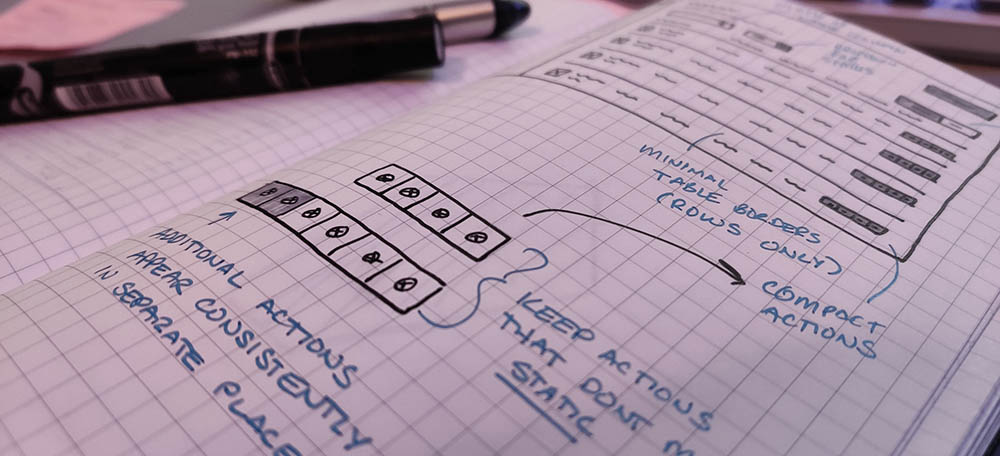 MINIMAL
TABLE BORDERS
(ROWS ONLY)
COMPACT
ACTIONS
ADDITIONAL ACTIONS
APPEAR CONSISTENTLY
IN SEPARATE PLACE
KEEP ACTIONS
THAT DONT
STATIC